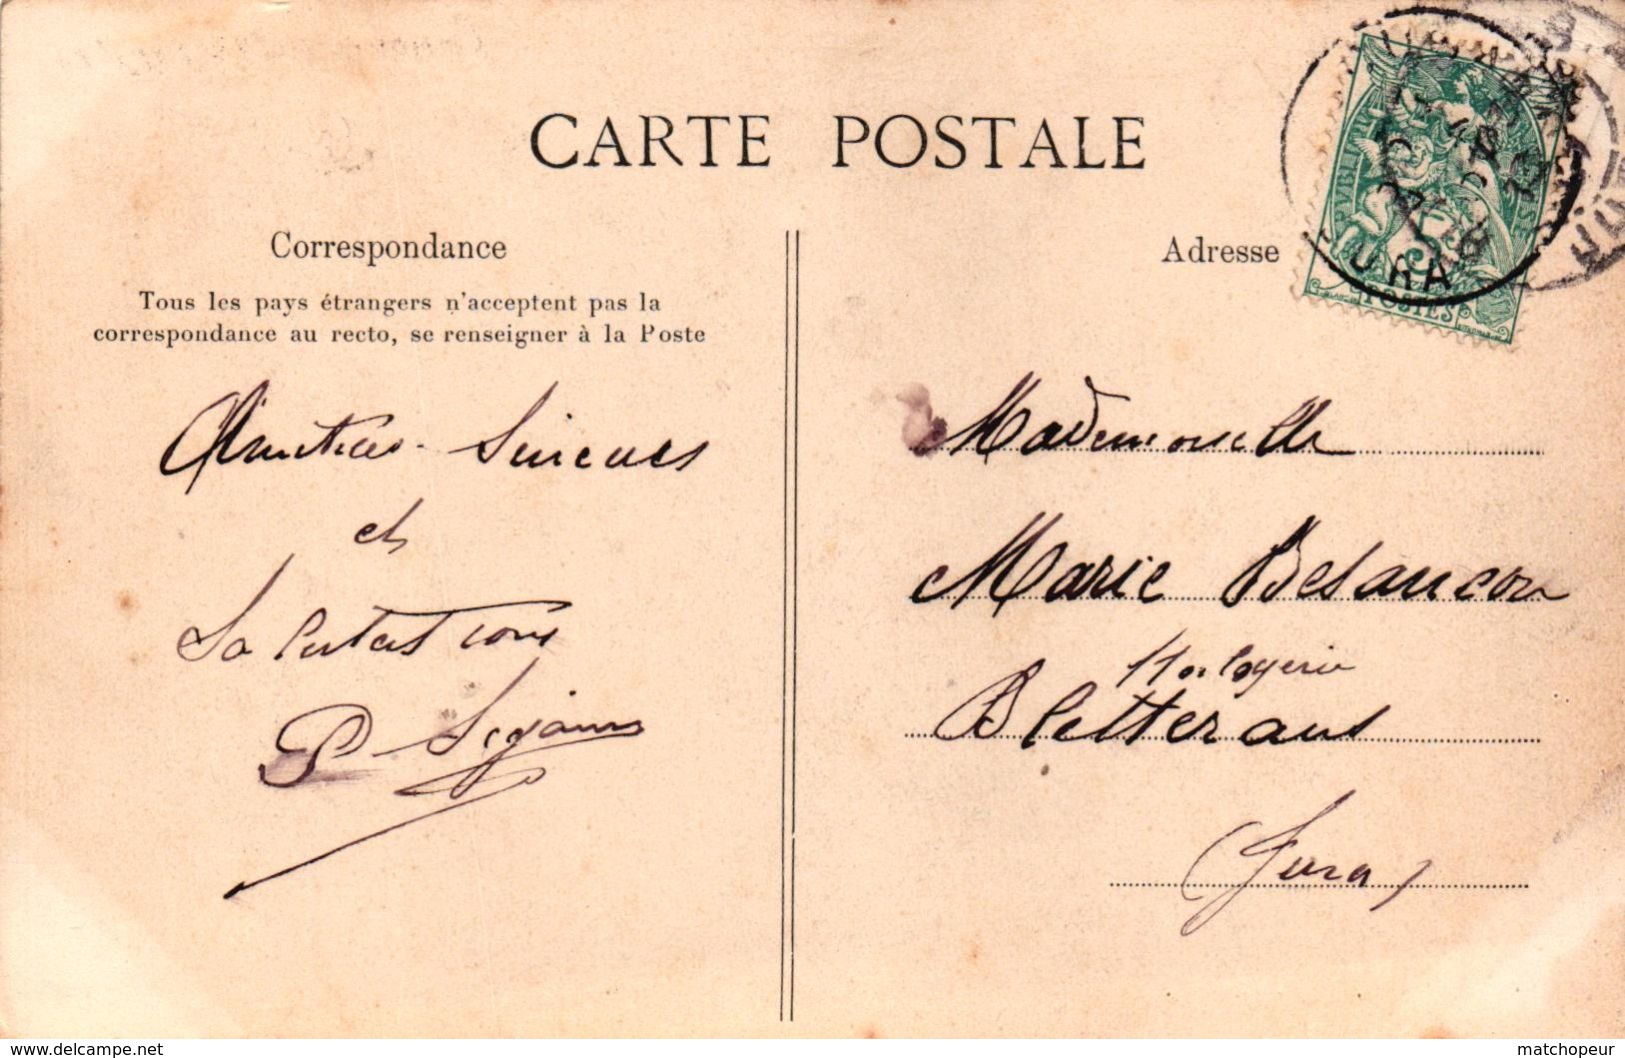 CARTE POSTALE
Correspondance
Tous les pays étrangers n'acceptent pas la
correspondance au recto, se renseigner à la Poste
Adresse
POSTES
URA
Amitiés Sincères
et
Salutations
P
Mademoiselle
Marie Besancon
Horlogerie
Bletterans
(Jura)
www.delcampe.net
matchopeur